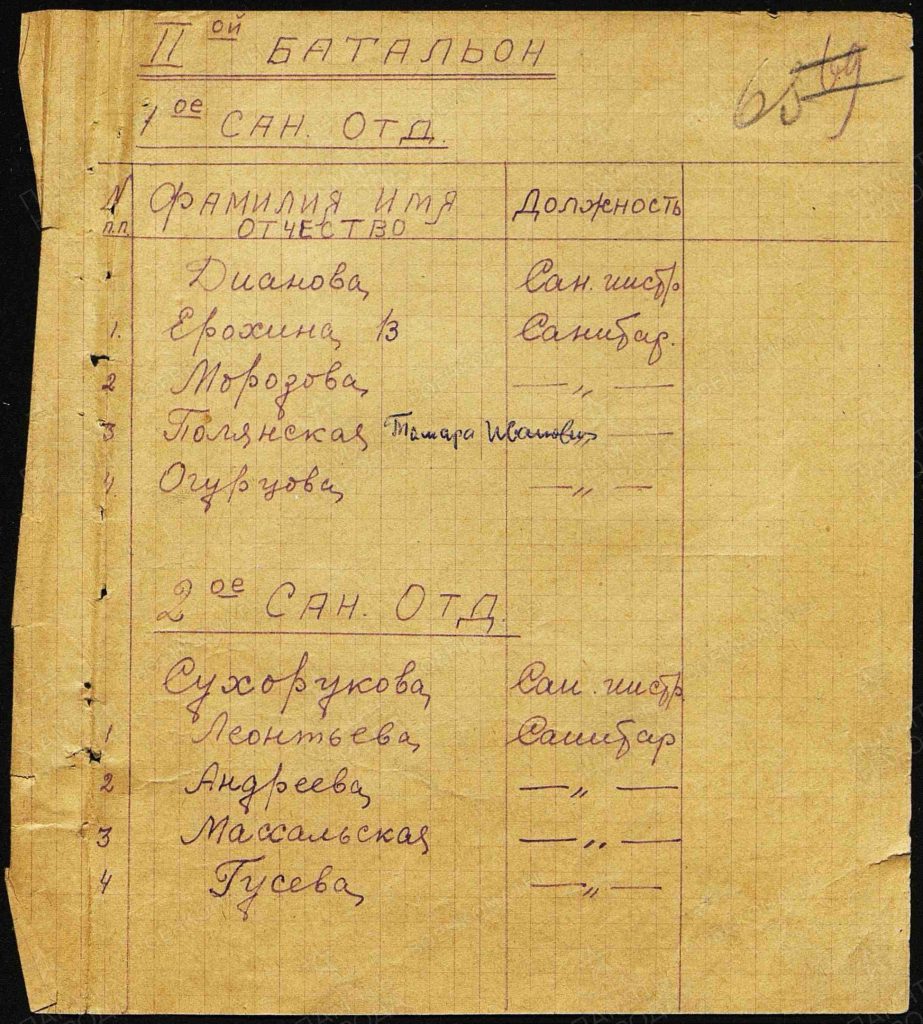 IIой БАТАЛЬОН
68 69
1ое САН. ОТД.
N п.п. ФАМИЛИЯ ИМЯ ОТЧЕСТВО ДОЛЖНОСТЬ
Дианова Сан. инстр.
1. Ерохина В Санитар.
2 Морозова — „ —
3 Полянская Тамара Ивановн —
4. Огурцова — „ —
2ое САН. ОТД.
Сухорукова Сан. инстр
1 Леонтьева Санитар
2 Андреева — „ —
3 Массальская — „ —
4 Гусева — „ —